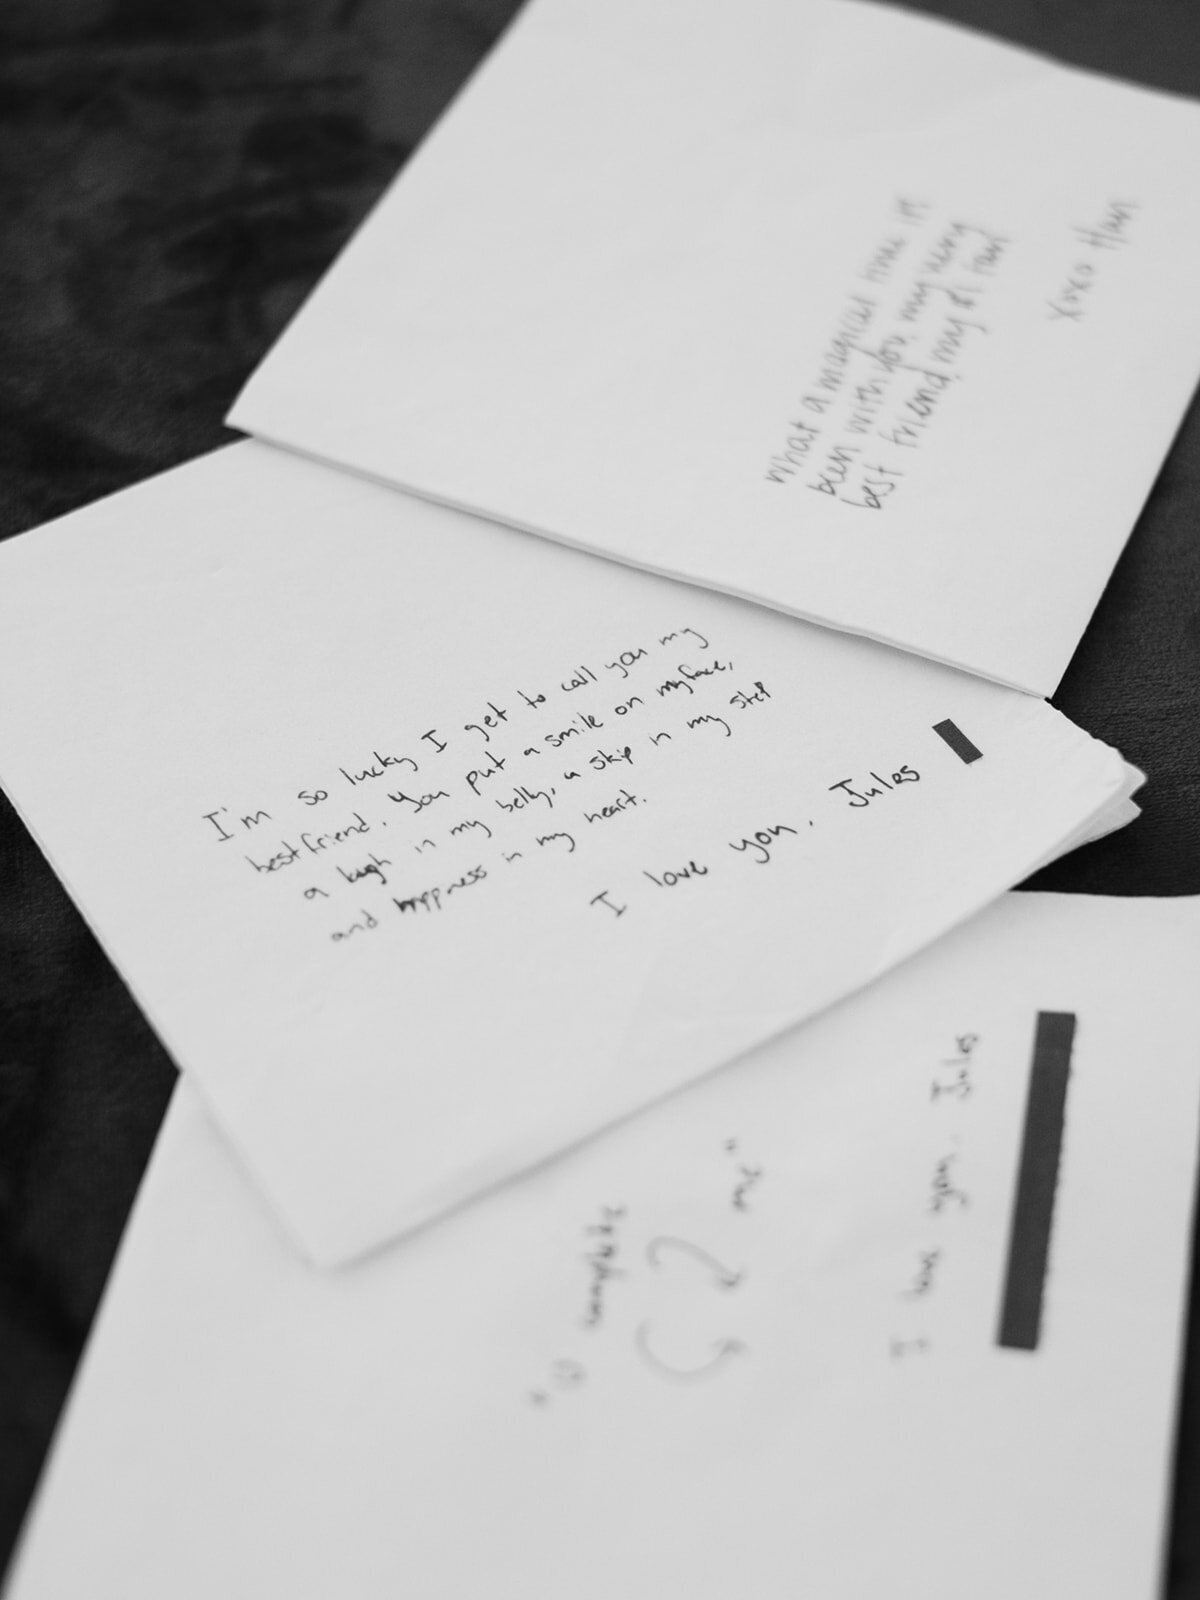 what a magical time it
been with you, my
best friend, my
xoxo Han
I'm so lucky I get to call you my
best friend. You put a smile on my face,
a laugh in my belly, a skip in my step
and happiness in my heart.
I love you, Jules
complete
me"
I love you, Jules